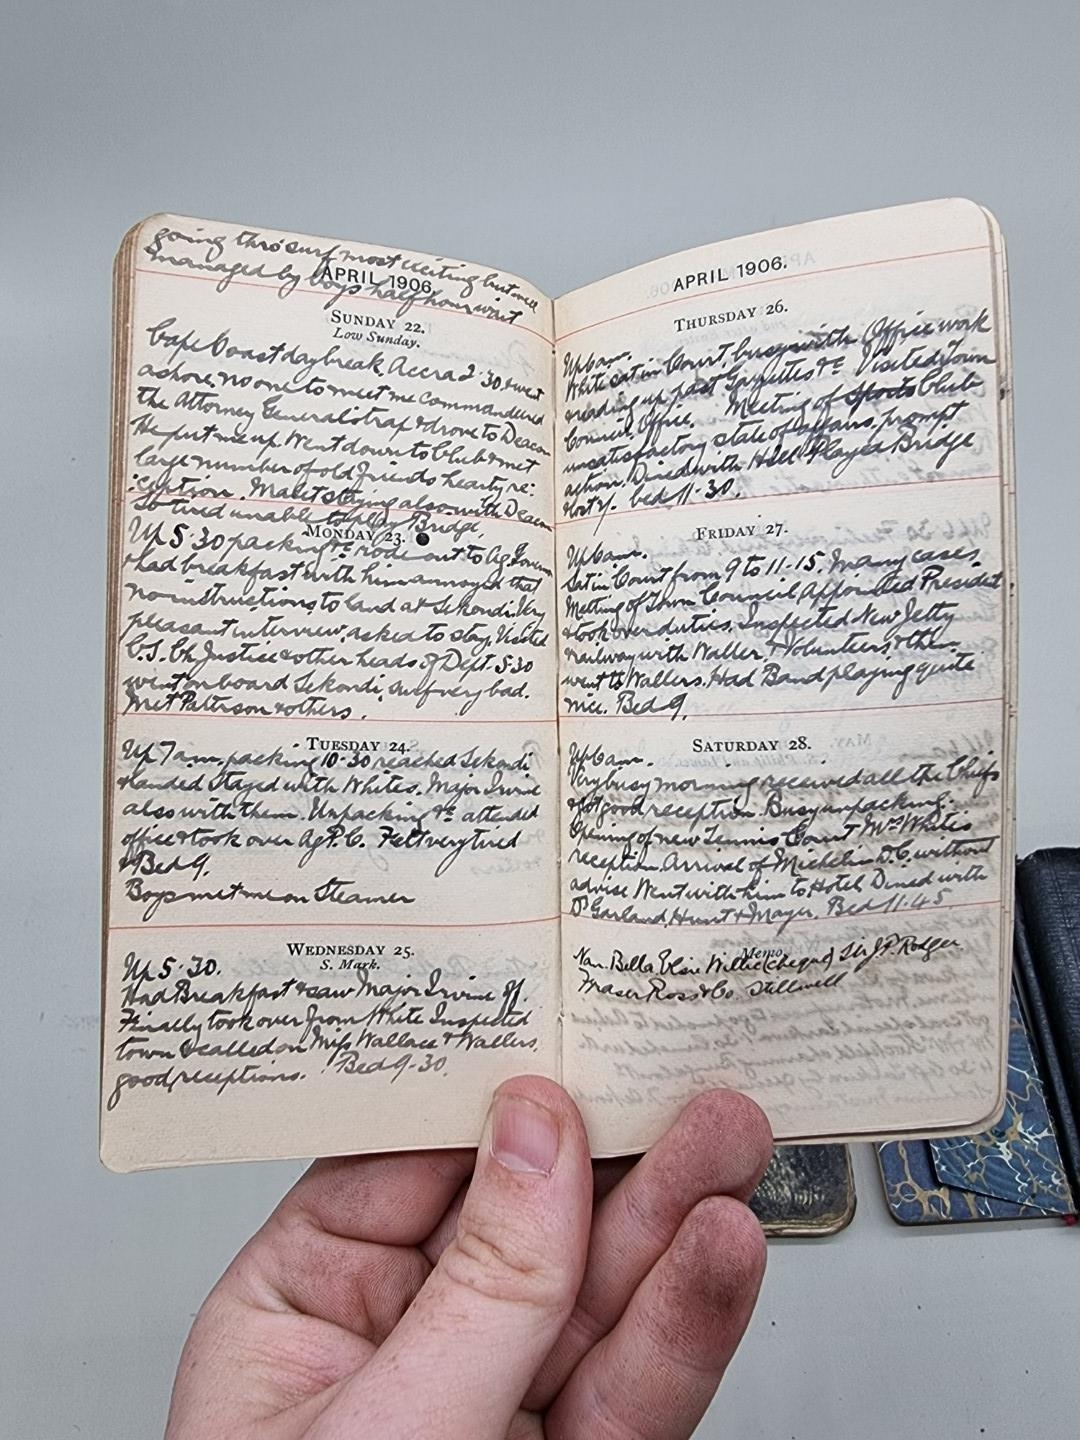 going thro surf most exciting but well
managed by boys half hour wait
APRIL 1906.
SUNDAY 22.
Low Sunday.
Cape Coast daybreak, Accra 2.30 & went
ashore, no one to meet me commandeered
the Attorney General's trap & drove to Deacon
He put me up. Went down to Club & met
large number of old friends hearty re:
ception. Malet staying also with Deacon
So tired unable to play Bridge,
MONDAY 23.
Up 5.30 packing &c rode out to Ag. Govern
& had breakfast with him annoyed that
no instructions to land at Sekondi. Very
pleasant interview, asked to stay. Visited
C.S. Ch. Justice & other heads of Dept. 5.30
went on board Sekondi, surf very bad.
Met Paterson & others.
TUESDAY 24.
Up 7 am, packing 10.30 reached Sekondi
& landed Stayed with Whites. Major Irvine
also with them. Unpacking &c attended
office & took over Ag P.C. Felt very tired
& Bed 9.
Boys met me on Steamer
WEDNESDAY 25.
S. Mark.
Up 5.30.
Had Breakfast & saw Major Irvine off.
Finally took over from White Inspected
town & called on Miss Wallace & Wallers,
good receptions. Bed 9-30.
APRIL 1906.
THURSDAY 26.
Up 6 am.
White sat in Court, busy with Office work
reading up past Gazettes &c. Visited Town
Council Office. Meeting of Sports Club
unsatisfactory state of affairs, prompt
action. Dined with Hill Played Bridge
lost /. bed 11-30.
FRIDAY 27.
Up 6 am.
Sat in Court from 9 to 11-15. Many cases
Meeting of Town Council Appointed President
& took over duties. Inspected New Jetty
railway with Waller. & Volunteers & then
went to Wallers. Had Band playing quite
nice. Bed 9.
SATURDAY 28.
Up 6 am.
Very busy morning received all the Chiefs
& got good reception. Busy unpacking.
Opening of new Tennis Court Mrs White's
reception. Arrival of Michelin D.C. without
advise Went with him to Hotel Dined with
Dr Garland, Hunt & Mayer. Bed 11.45.
Memo.
Nan. Bella Elsie Willie (cheque) Sir J.P. Rodger
Fraser Ross & Co. Stillwell